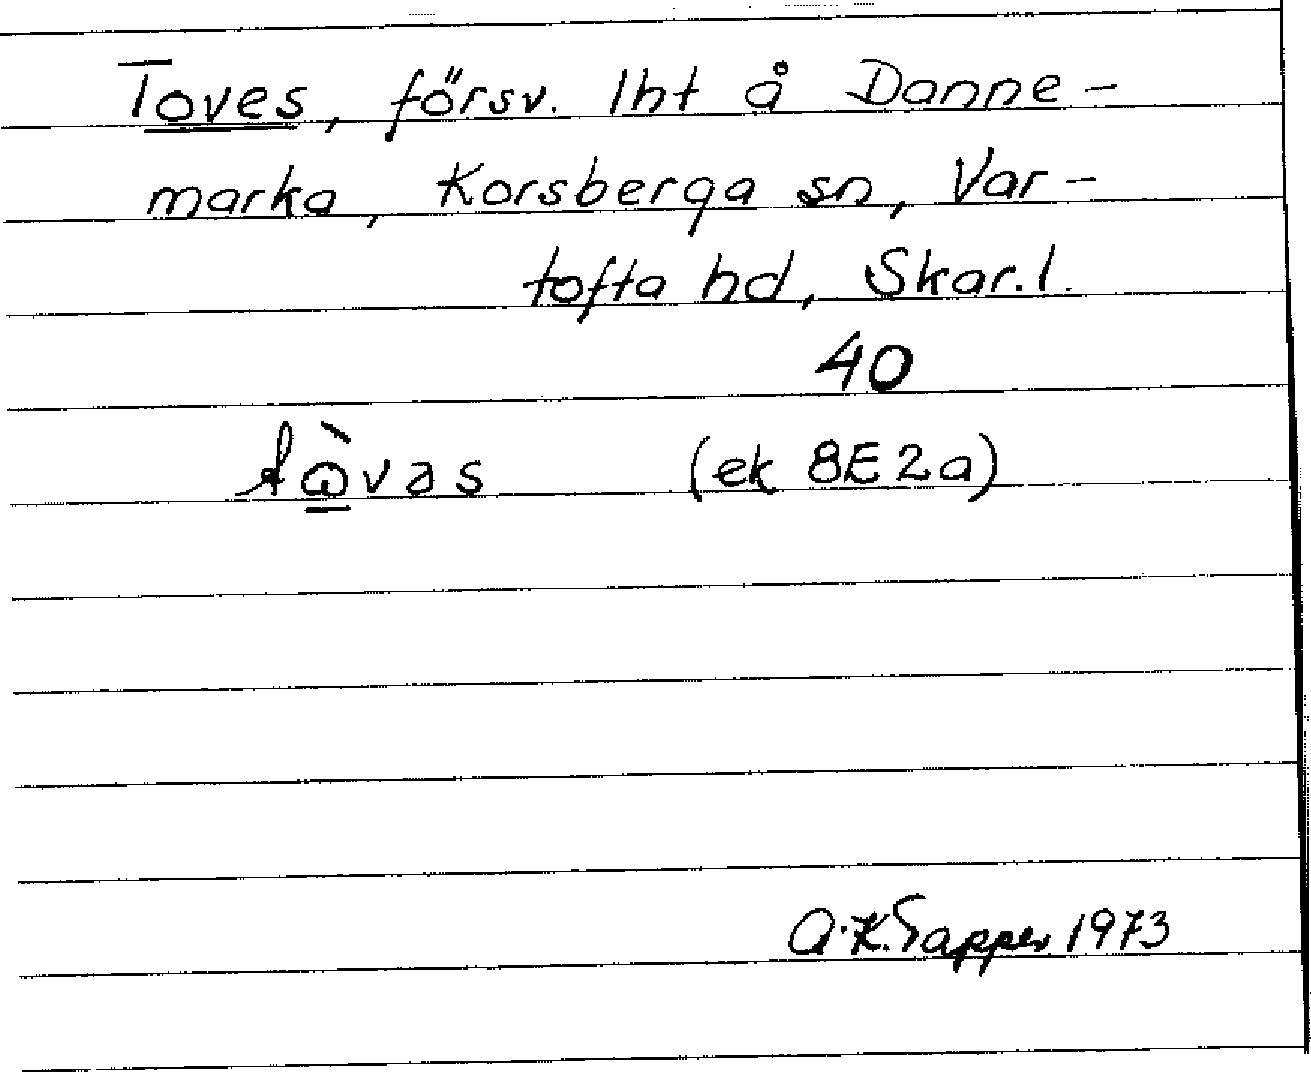 Toves, försv. lht å Danne-
marka, Korsberga sn, Var-
tofta hd, Skar.l.
40
(ek 8E2a)
A.K. Sapper 1973